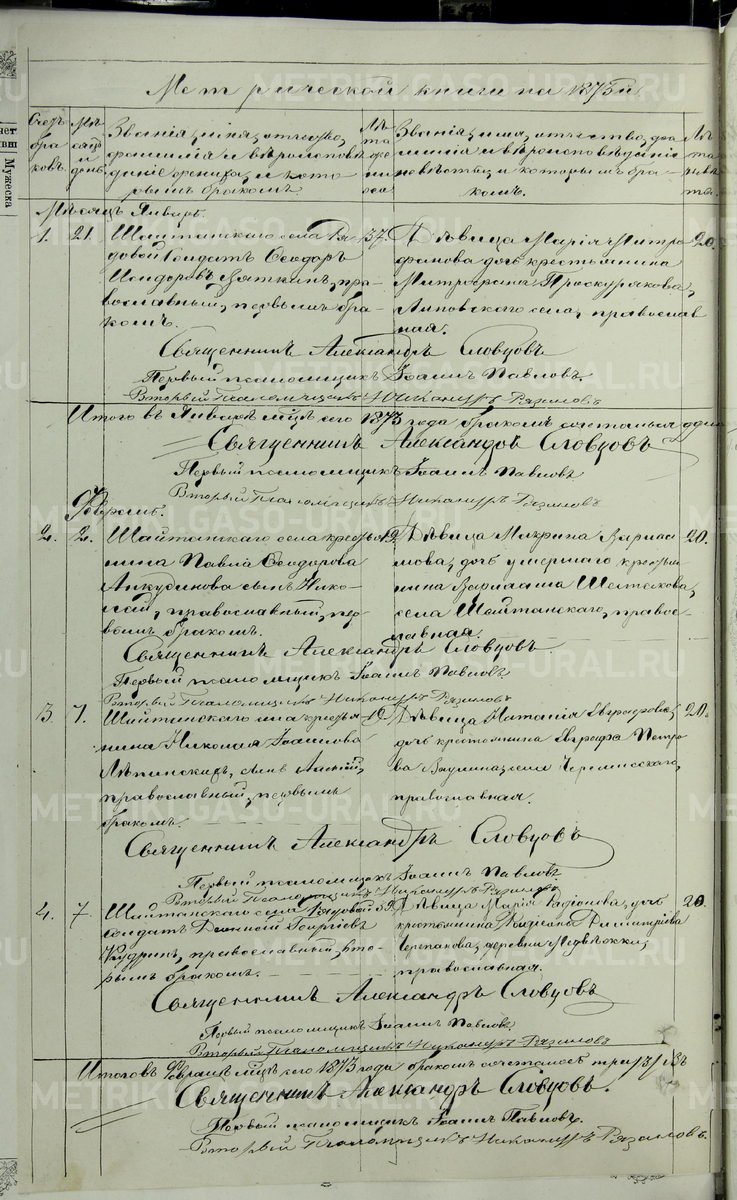 Метрической книги на 1873й
Счетъ браковъ.
Мѣсяцъ и день.
Званія, имя, отчество, фамилія и вѣроисповѣданіе жениха, и которымъ бракомъ.
Лѣта жениха.
Званія, имя, отчество, фамилія и вѣроисповѣданіе невѣсты, и которымъ бракомъ.
Лѣта невѣсты.
Мужеска
Мѣсяцъ Январь.
1. 21.
Шайтанскаго села Ря-
довой Солдатъ Ѳеодоръ
Исидоровъ Вяткинъ, пра-
вославный, первымъ бра-
комъ.
37.
Дѣвица Марія Митро
фанова дочь крестьянина
Митрофана Проскурякова,
Липовского села, православ
ная.
20.
Священникъ Александръ Словцовъ
Первый псаломщикъ Іоаннъ Павловъ.
Второй Псаломщикъ Никаноръ
Итого въ Январѣ мцѣ сего 1873 года бракомъ сочетался одинъ
Священникъ Александръ Словцовъ
Первый псаломщикъ Іоаннъ Павловъ
Второй Псаломщикъ Никаноръ
Февраль.
2. 2.
Шайтанскаго села кресть
янина Павла Ѳеодорова
Анкудинова сынъ Нико-
лай, православный, пер-
вымъ бракомъ.
19.
Дѣвица Макрина Варла
мова, дочь умершаго крестья-
нина Варлаама
села Шайтанскаго, правос-
лавная.
20.
Священникъ Александръ Словцовъ.
Первый псаломщикъ Іоаннъ Павловъ
Второй Псаломщикъ Никаноръ
3. 7.
Шайтанскаго села крестья
нина Николая Іоаннова
сынъ
православный, первымъ
бракомъ.
19.
Дѣвица Наталія Евграфова,
дочь крестьянина Евграфа Петро
ва села Черемисскаго,
православная.
20.
Священникъ Александръ Словцовъ
Первый псаломщикъ Іоаннъ Павловъ
Второй Псаломщикъ Никаноръ
4. 7.
Шайтанскаго села Рядовой
солдатъ Георгіевъ
Кудринъ, православный, вто-
рымъ бракомъ.
39.
Дѣвица Марія Родіонова, дочь
крестьянина Родіона Димитріева
Черепанова, деревни
православная.
20.
Священникъ Александръ Словцовъ
Первый псаломщикъ Іоаннъ Павловъ.
Второй Псаломщикъ Никаноръ
Итого въ Февралѣ мцѣ сего 1873 года бракомъ сочеталось три /3/ М.ъ
Священникъ Александръ Словцовъ.
Первый псаломщикъ Іоаннъ Павловъ.
Второй Псаломщикъ Никаноръ
METRIKI.GASO-URAL.RU